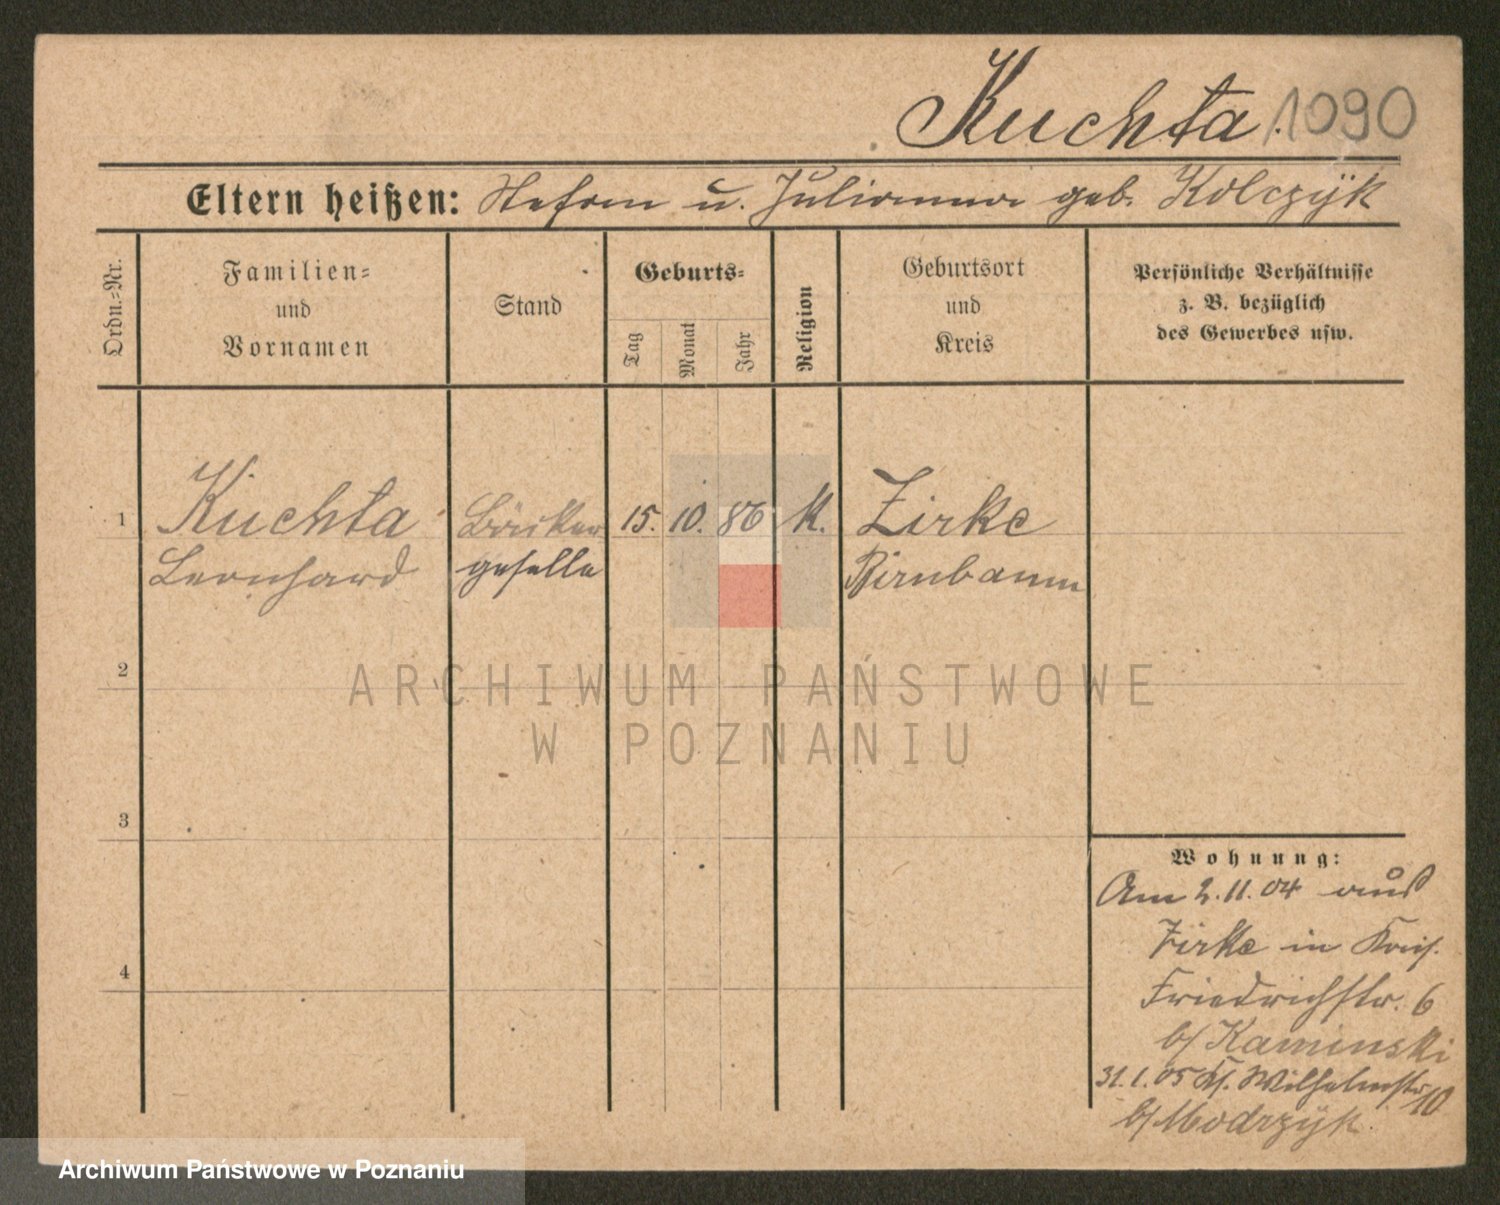 Kuchta. 1090
Eltern heißen: Stefan u. Julianna geb. Kolczÿk
Ordn.-Nr.
Familien-
und
Vornamen
Stand
Geburts-
Tag
Monat
Jahr
Religion
Geburtsort
und
Kreis
Persönliche Verhältnisse
z. B. bezüglich
des Gewerbes usw.
1 Kuchta Bäcker 15. 10. 86 K. Zirke
Leonhard geselle Birnbaum
2
3
4
Wohnung:
Am 2.11.04 aus
Zirke in
Friedrichstr. 6
b/ Kaminski
31.1.05 Kl. Wilhelmstr 10
b/ Modrzÿk
ARCHIWUM PAŃSTWOWE
W POZNANIU
Archiwum Państwowe w Poznaniu